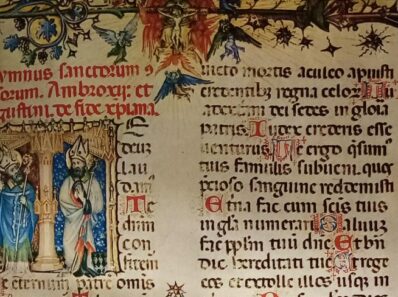 ymnus sanctorum
sorum. Ambrosij: et
gustini. de fide xpiana.
E
deuz
lau
dam⁹
Te
dnm
con
fitem
te eternum patre omis
uicto mortis aculeo apuisti
credentibꝫ regna celoꝝ
ad dexteram dei sedes in gloia
patris. Iudex crederis esse
uenturus. Te ergo qsum⁹
tuis famulis subueni. quos
precioso sanguine redemisti
Etna fac cum scis tuis
in gla numerari Saluuz
fac pplm tuū dne. Et bn
dic hereditati tue Et rege
eos et extolle illos usqꝫ in